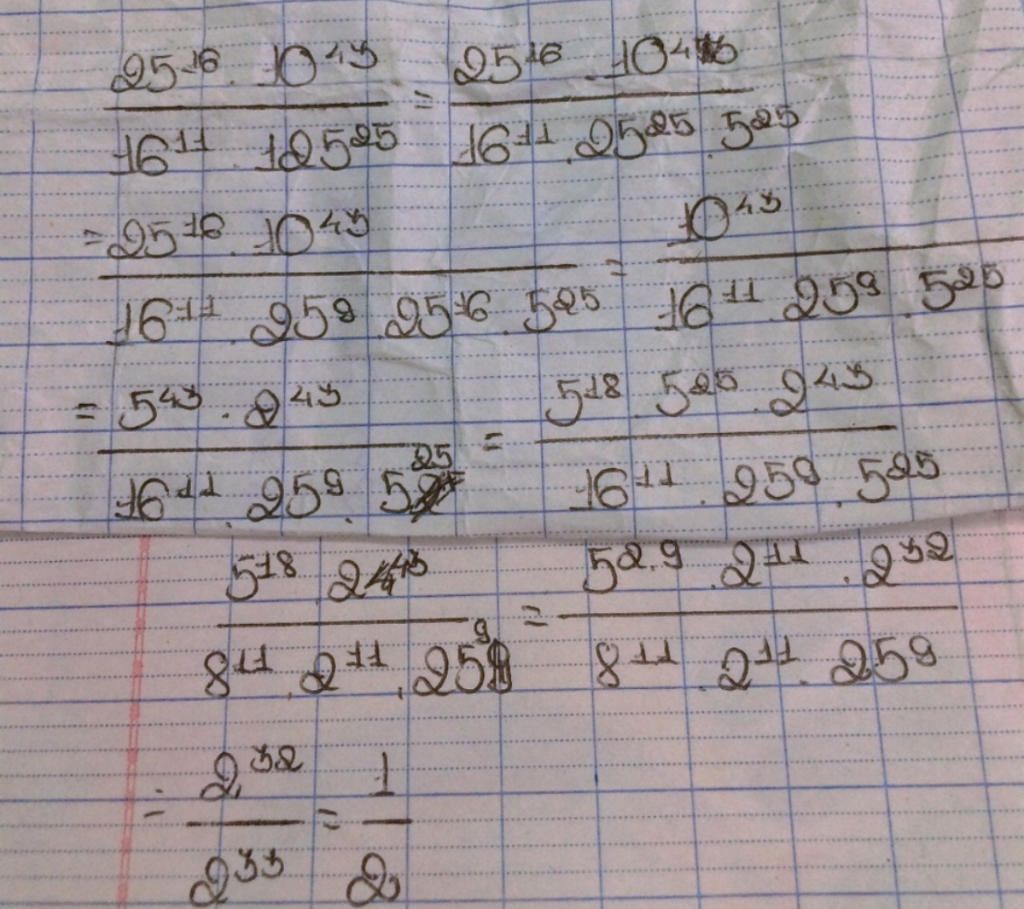 25^16 . 10^43 / 16^11 . 125^25 = 25^16 . 10^43 / 16^11 . 25^25 . 5^25
= 25^16 . 10^43 / 16^11 . 25^9 . 25^16 . 5^25 = 10^43 / 16^11 . 25^9 . 5^25
= 5^43 . 2^43 / 16^11 . 25^9 . 5^25 = 5^18 . 5^25 . 2^43 / 16^11 . 25^9 . 5^25
5^18 . 2^43 / 8^11 . 2^11 . 25^9 = 5^2.9 . 2^11 . 2^32 / 8^11 . 2^11 . 25^9
= 2^32 / 2^33 = 1 / 2